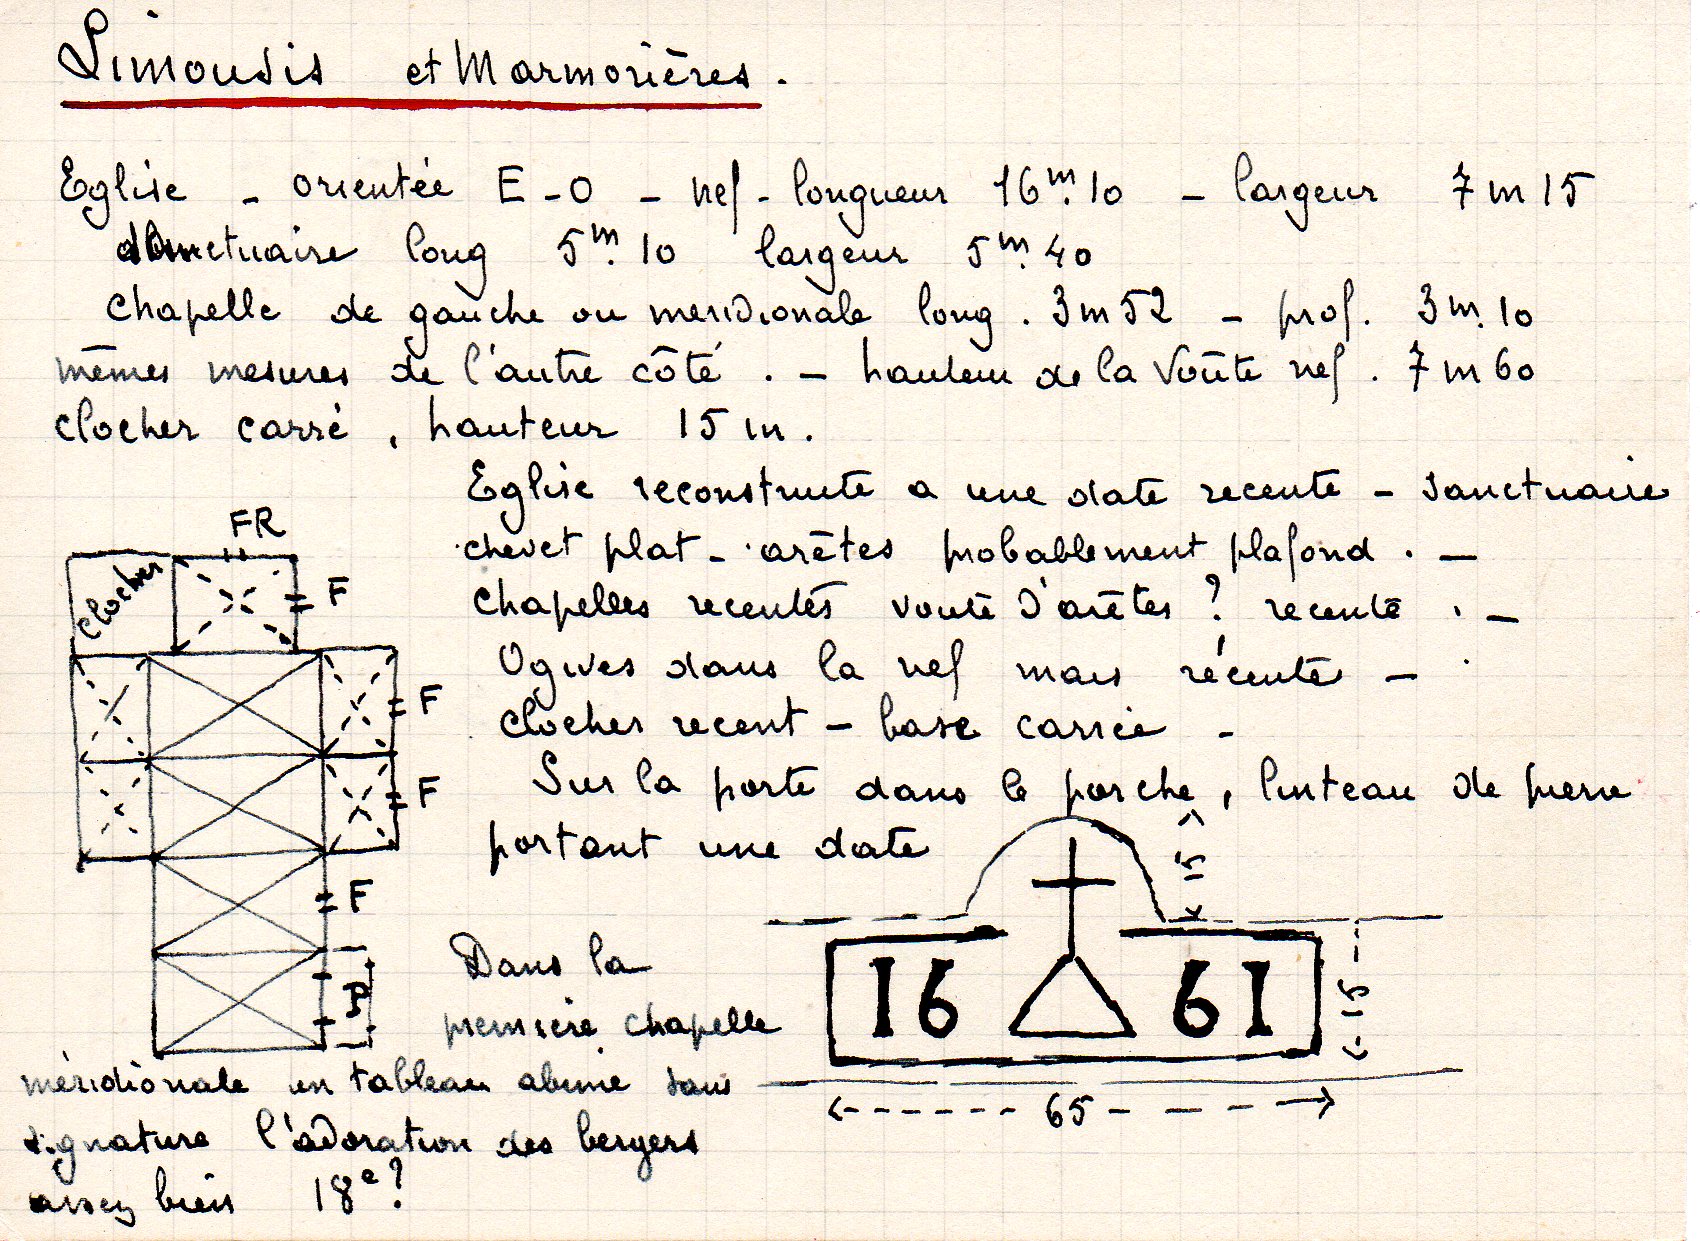 Limousis et Marmorières.
Eglise - orientée E-O - nef - longueur 16m.10 - largeur 7m15
sanctuaire long 5m.10 largeur 5m.40
chapelle de gauche ou meridionale long. 3m52 - prof. 3m.10
mêmes mesures de l'autre côté. - hauteur de la voûte nef. 7m60
clocher carré, hauteur 15m.
Eglise reconstruite a une date recente - sanctuaire
chevet plat - arêtes probablement plafond. -
chapelles recentes voute d'arêtes ? recente. -
Ogives dans la nef mais récentes -
clocher recent - base carrée -
Sur la porte dans le porche, linteau de pierre
portant une date
FR
clocher
F
F
F
F
P
15
16 61
15
65
Dans la
premiere chapelle
méridionale un tableau abimé sans
signature l'adoration des bergers
assez bien 18e?